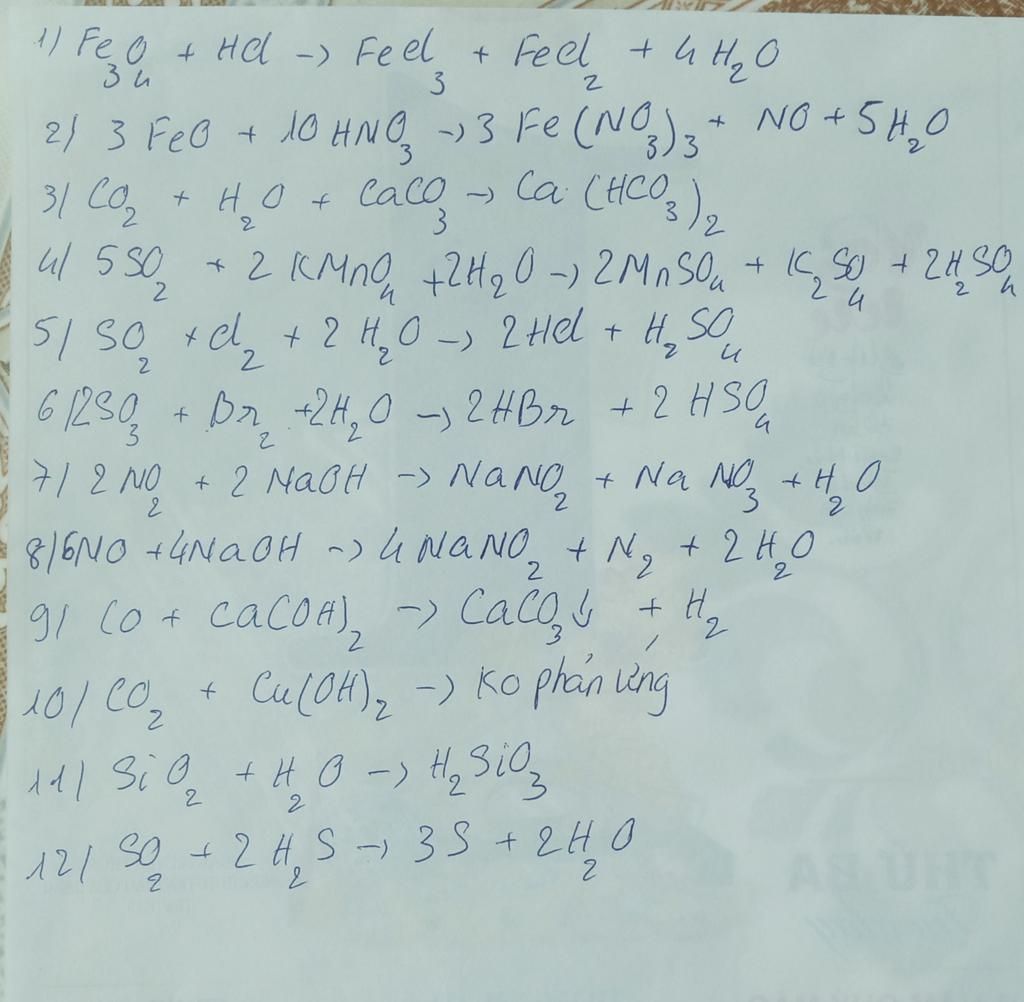 1) Fe3O4 + HCl -> FeCl3 + FeCl2 + 4H2O
2) 3 FeO + 10 HNO3 -> 3 Fe(NO3)3 + NO + 5H2O
3) CO2 + H2O + CaCO3 -> Ca(HCO3)2
4) 5SO2 + 2 KMnO4 + 2H2O -> 2MnSO4 + K2SO4 + 2H2SO4
5) SO2 + Cl2 + 2 H2O -> 2HCl + H2SO4
6) 2SO3 + Br2 + 2H2O -> 2HBr + 2 HSO4
7) 2 NO2 + 2 NaOH -> NaNO2 + NaNO3 + H2O
8) 6NO + 4NaOH -> 4 NaNO2 + N2 + 2 H2O
9) CO + Ca(OH)2 -> CaCO3↓ + H2
10) CO2 + Cu(OH)2 -> Ko phản ứng
11) SiO2 + H2O -> H2SiO3
12) SO2 + 2 H2S -> 3S + 2H2O
THỨ BA